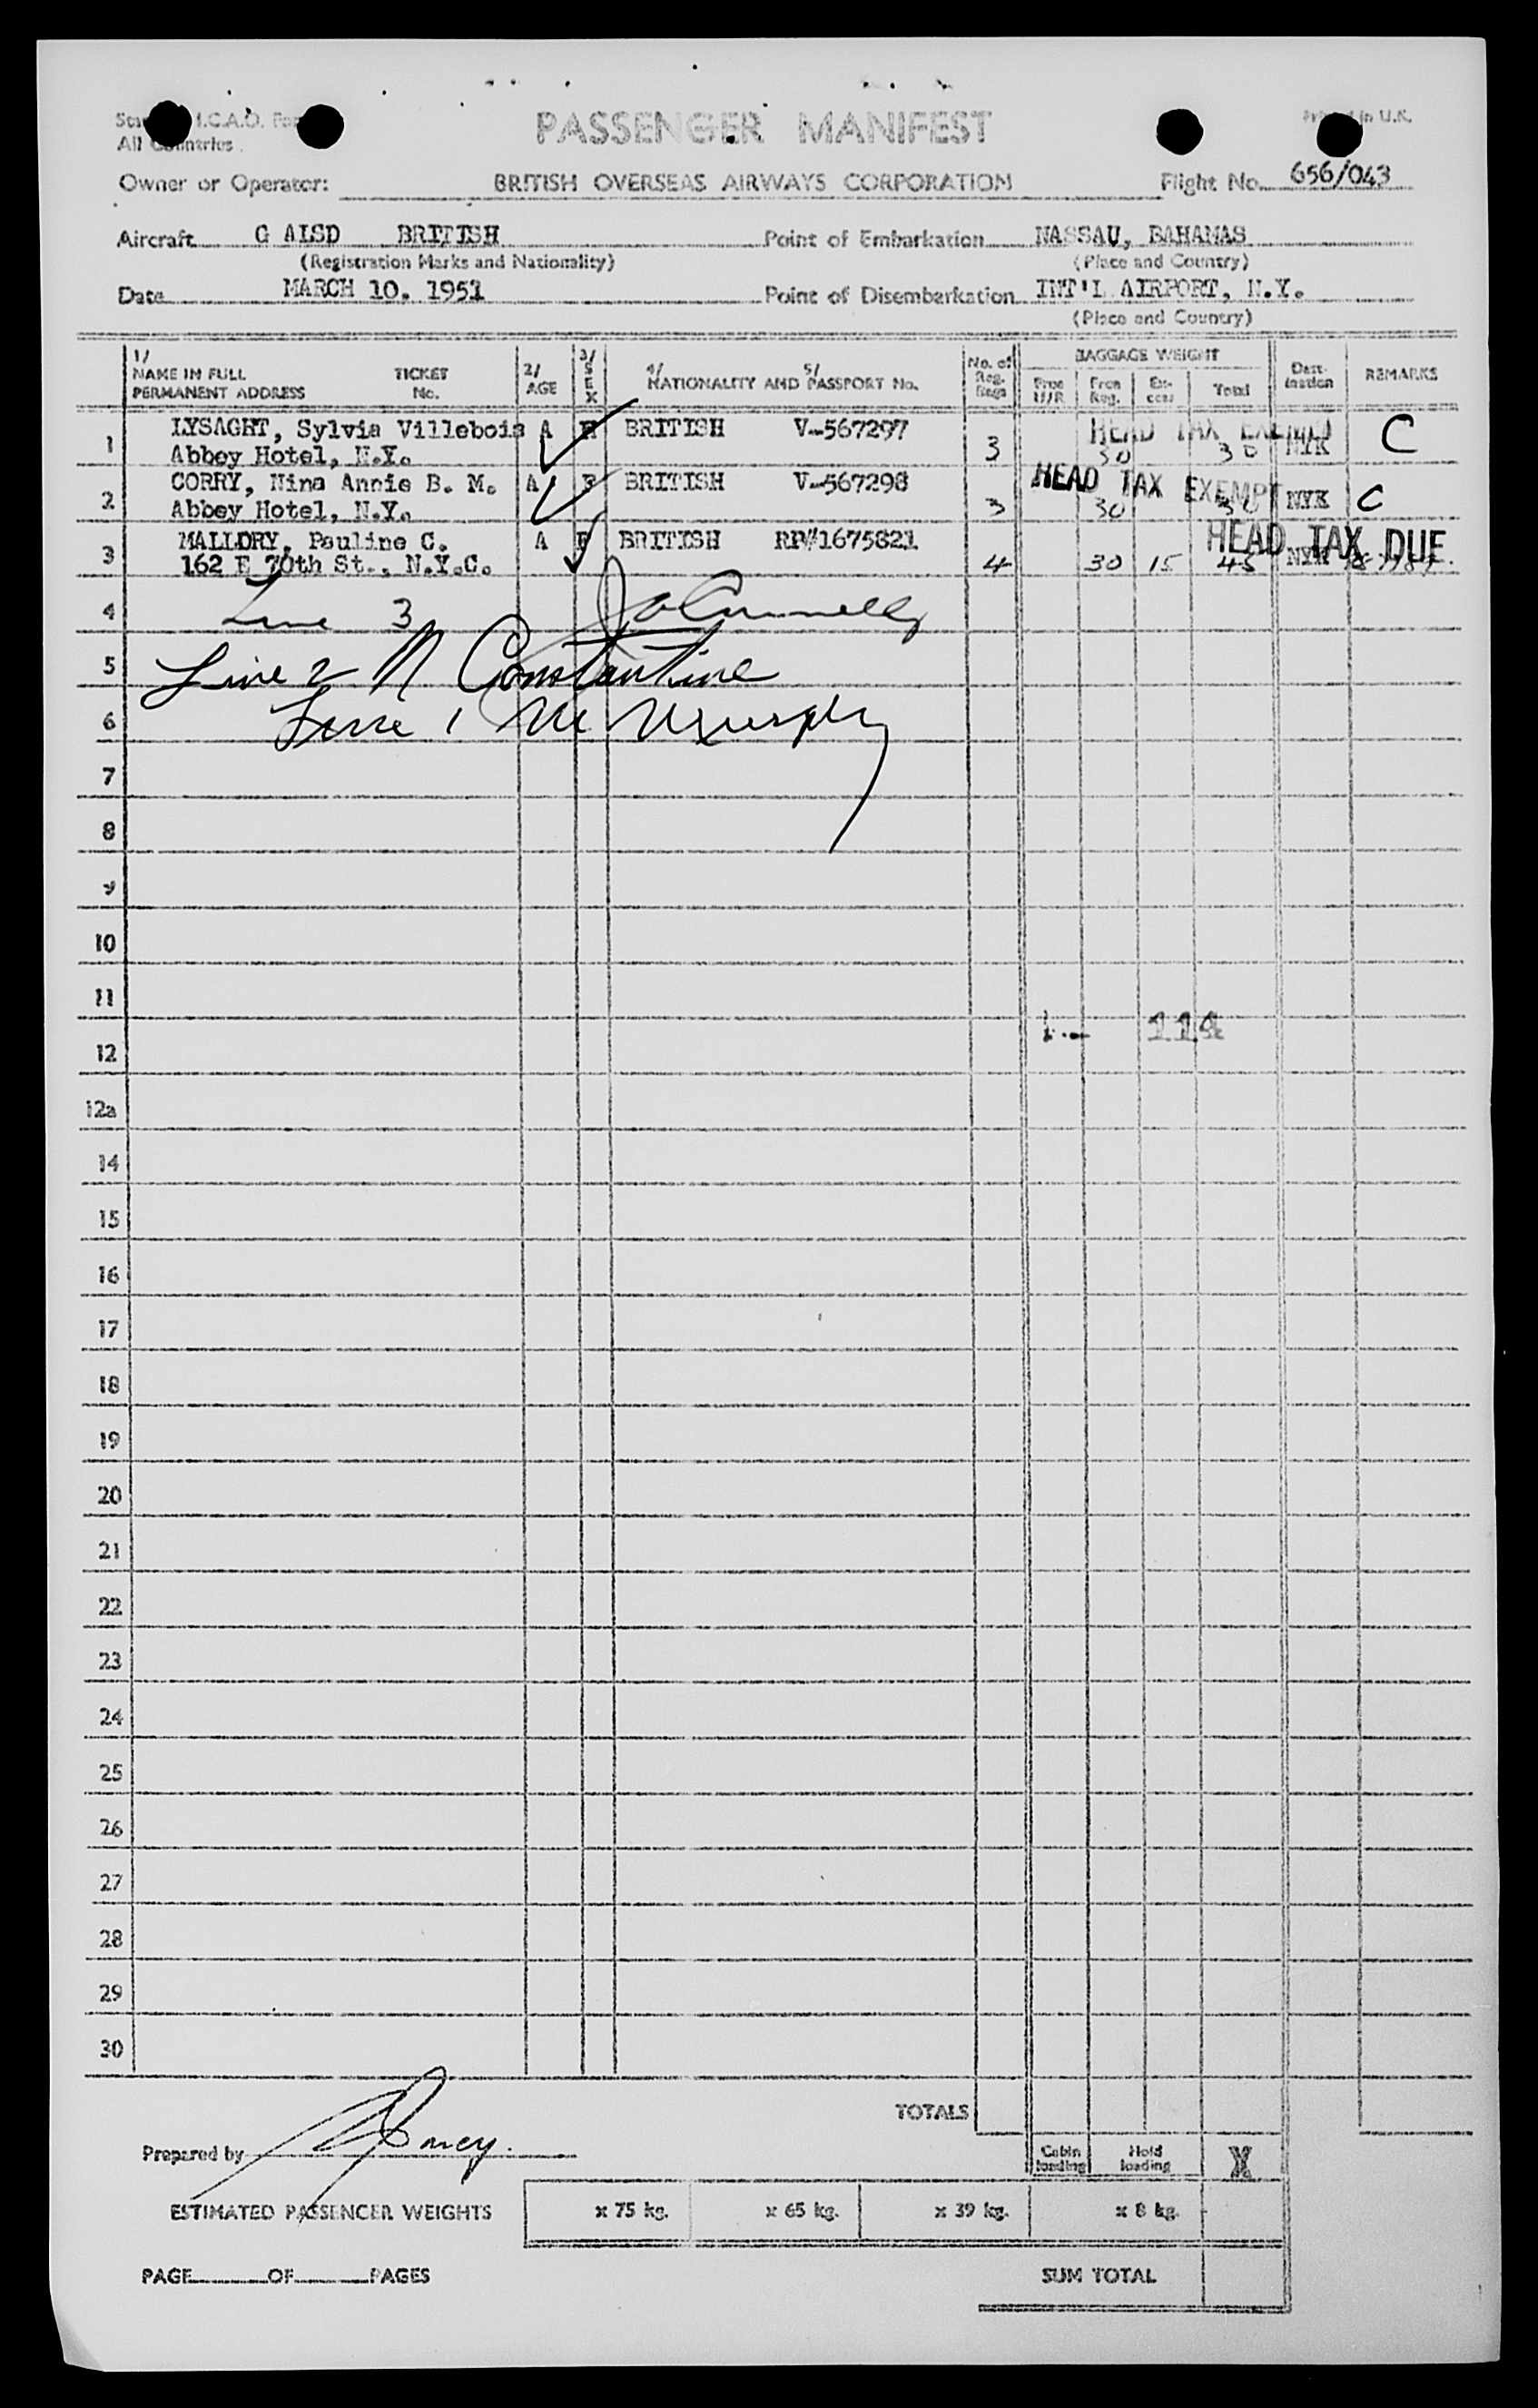 I.C.A.O.
All Countries
PASSENGER MANIFEST
in U.K.
Owner or Operator: BRITISH OVERSEAS AIRWAYS CORPORATION Flight No. 656/043
Aircraft G AISD BRITISH Point of Embarkation NASSAU, BAHAMAS
(Registration Marks and Nationality) (Place and Country)
Date MARCH 10. 1951 Point of Disembarkation INT'L AIRPORT, N.Y.
(Place and Country)
1/ NAME IN FULL PERMANENT ADDRESS TICKET No. 2/ AGE 3/ SEX 4/ NATIONALITY AND 5/ PASSPORT No. No. of Reg. Bags BAGGAGE WEIGHT Free U/R Free Reg. Ex-cess Total Dest-ination REMARKS
1 LYSAGHT, Sylvia Villebois A F BRITISH V-567297 HEAD TAX EXEMPT C
Abbey Hotel, N.Y. 3 30 30 NYK
2 CORRY, Nina Annie B. M. A F BRITISH V-567298 HEAD TAX EXEMPT
Abbey Hotel, N.Y. 3 30 30 NYK C
3 MALLORY, Pauline C. A F BRITISH RP#1675821 HEAD TAX DUE
162 E 70th St., N.Y.C. 4 30 15 45 NYK
4 Line 3
5 Line 2 N Constantine
6 Line 1
7
8
9
10
11
114
12
12a
14
15
16
17
18
19
20
21
22
23
24
25
26
27
28
29
30
TOTALS
Prepared by
Cabin loading Hold loading X
ESTIMATED PASSENGER WEIGHTS x 75 kg. x 65 kg. x 39 kg. x 8 kg.
PAGE OF PAGES SUM TOTAL